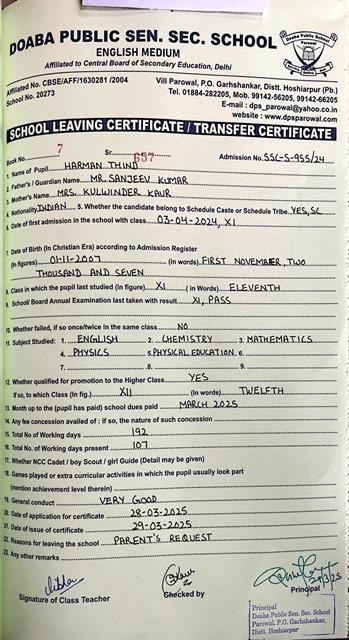 DOABA PUBLIC SEN. SEC. SCHOOL
ENGLISH MEDIUM
Affiliated to Central Board of Secondary Education, Delhi
Affiliated No. CBSE/AFF/1630281 /2004
School No. 20273
Vill Parowal, P.O. Garhshankar, Distt. Hoshiarpur (Pb.)
Tel. 01884-282205, Mob. 99142-56205, 99142-66205
E-mail : dps_parowal@yahoo.co.in
website : www.dpsparowal.com
SCHOOL LEAVING CERTIFICATE / TRANSFER CERTIFICATE
Book No. 7 Sr. 657 Admission No. SSC-S-955/24
1. Name of Pupil HARMAN THIND
2. Father's / Guardian Name MR. SANJEEV KUMAR
3. Mother's Name MRS. KULWINDER KAUR
4. Nationality INDIAN 5. Whether the candidate belong to Schedule Caste or Schedule Tribe YES, SC
6. Date of first admission in the school with class 03-04-2024, XI
7. Date of Birth (In Christian Era) according to Admission Register
(In figures) 01-11-2007 (in words) FIRST NOVEMBER, TWO
THOUSAND AND SEVEN
8. Class in which the pupil studied (in figure) XI ( in Words) ELEVENTH
9. School/ Board Annual Examination last taken with result XI, PASS
10. Whether failed, if so once/twice in the same class NO
11. Subject Studied: 1. ENGLISH 2. CHEMISTRY 3. MATHEMATICS
4. PHYSICS 5. PHYSICAL EDUCATION 6.
7. 8. 9.
12. Whether qualified for promotion to the Higher Class YES
If so, to which Class (In fig.) XII (In words) TWELFTH
13. Month up to the (pupil has paid) school dues paid MARCH 2025
14. Any fee concession availed of : if so, the nature of such concession
15. Total No of Working days 192
16. Total No. of Working days present 107
17. Whether NCC Cadet / boy Scout / girl Guide (Detail may be given)
18. Games played or extra curricular activities in which the pupil usually look part
(mention achievement level therein)
19. General conduct VERY GOOD
20. Date of application for certificate 28-03-2025
21. Date of issue of certificate 29-03-2025
22. Reasons for leaving the school PARENT'S REQUEST
23. Any other remarks
Signature of Class Teacher Checked by Principal
Principal
Doaba Public Sen. Sec. School
Parowal, P.O. Garhshankar,
Distt. Hoshiarpur